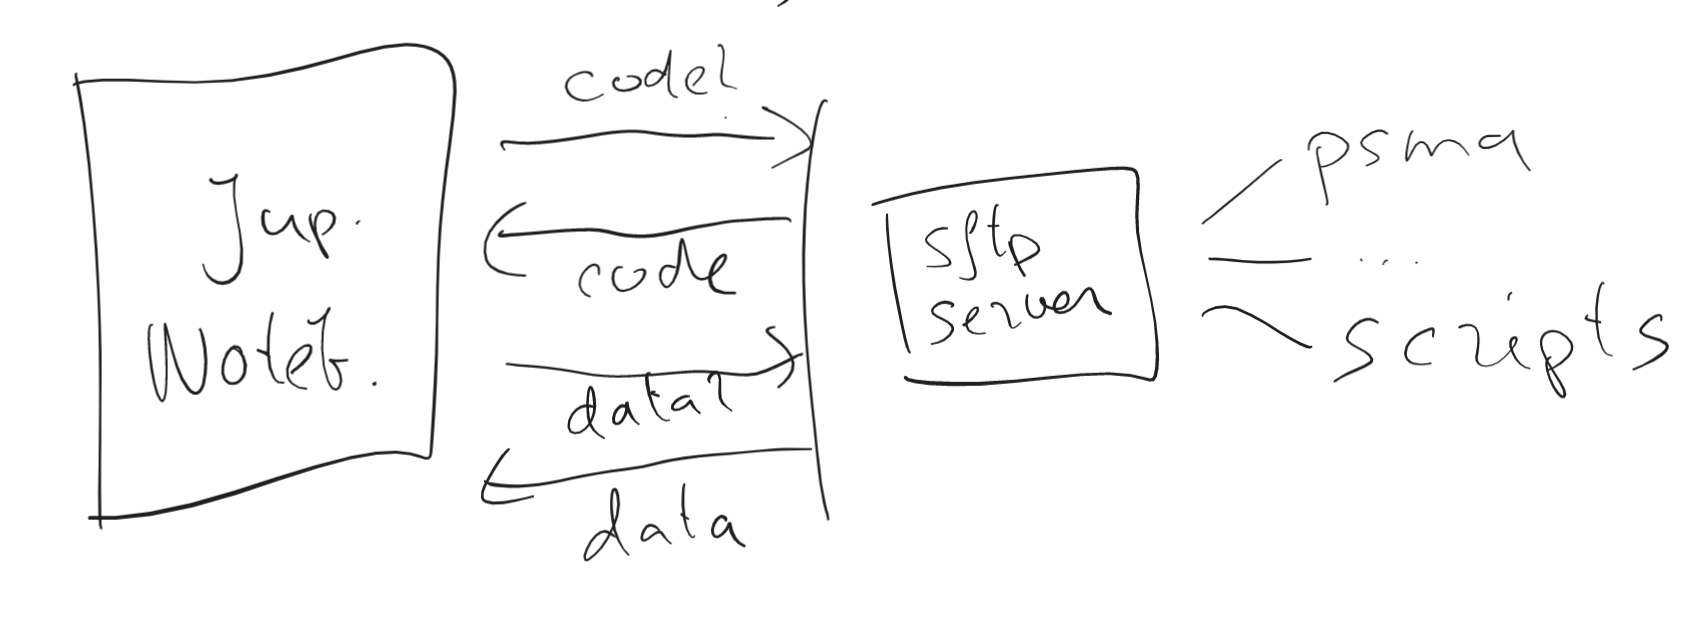 code?
Jup.
Noteb.
code
data?
data
sftp
server
psma
...
scripts